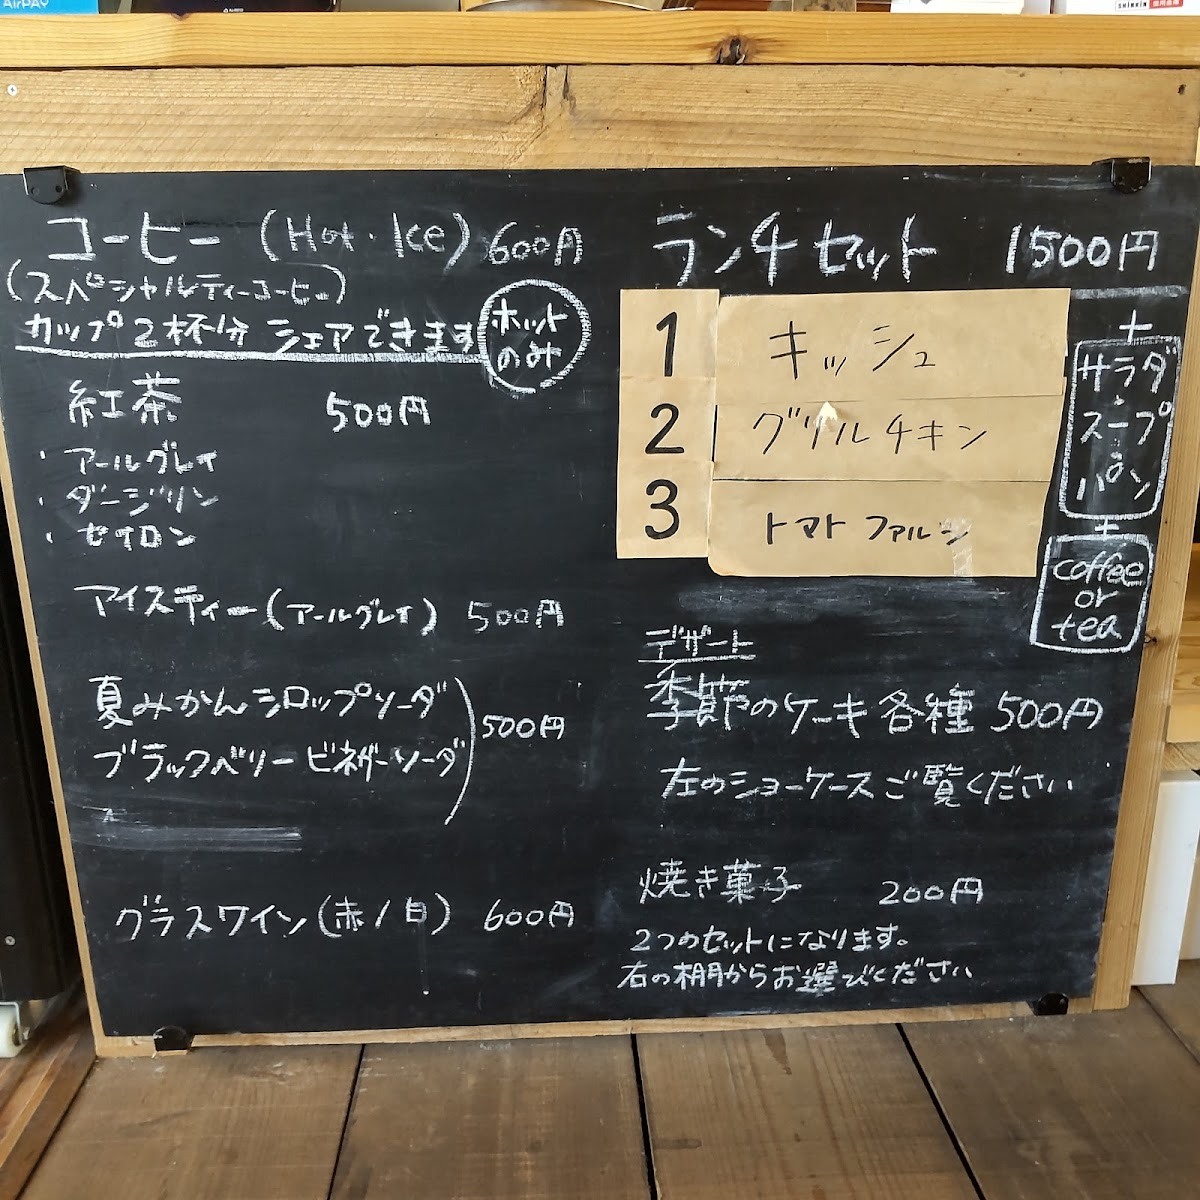 AirPAY
コーヒー (Hot・Ice) 600円
(スペシャルティーコーヒー)
カップ2杯分 シェアできます
ホット
のみ
紅茶 500円
・アールグレイ
・ダージリン
・セイロン
アイスティー(アールグレイ) 500円
夏みかんシロップソーダ
ブラックベリービネガーソーダ
500円
グラスワイン(赤/白) 600円
ランチセット 1500円
1 キッシュ
2 グリルチキン
3 トマトファルシ
+
サラダ
スープ
パン
+
coffee
or
tea
デザート
季節のケーキ各種 500円
左のショーケースご覧ください
焼き菓子 200円
2つのセットになります。
右の棚からお選びください